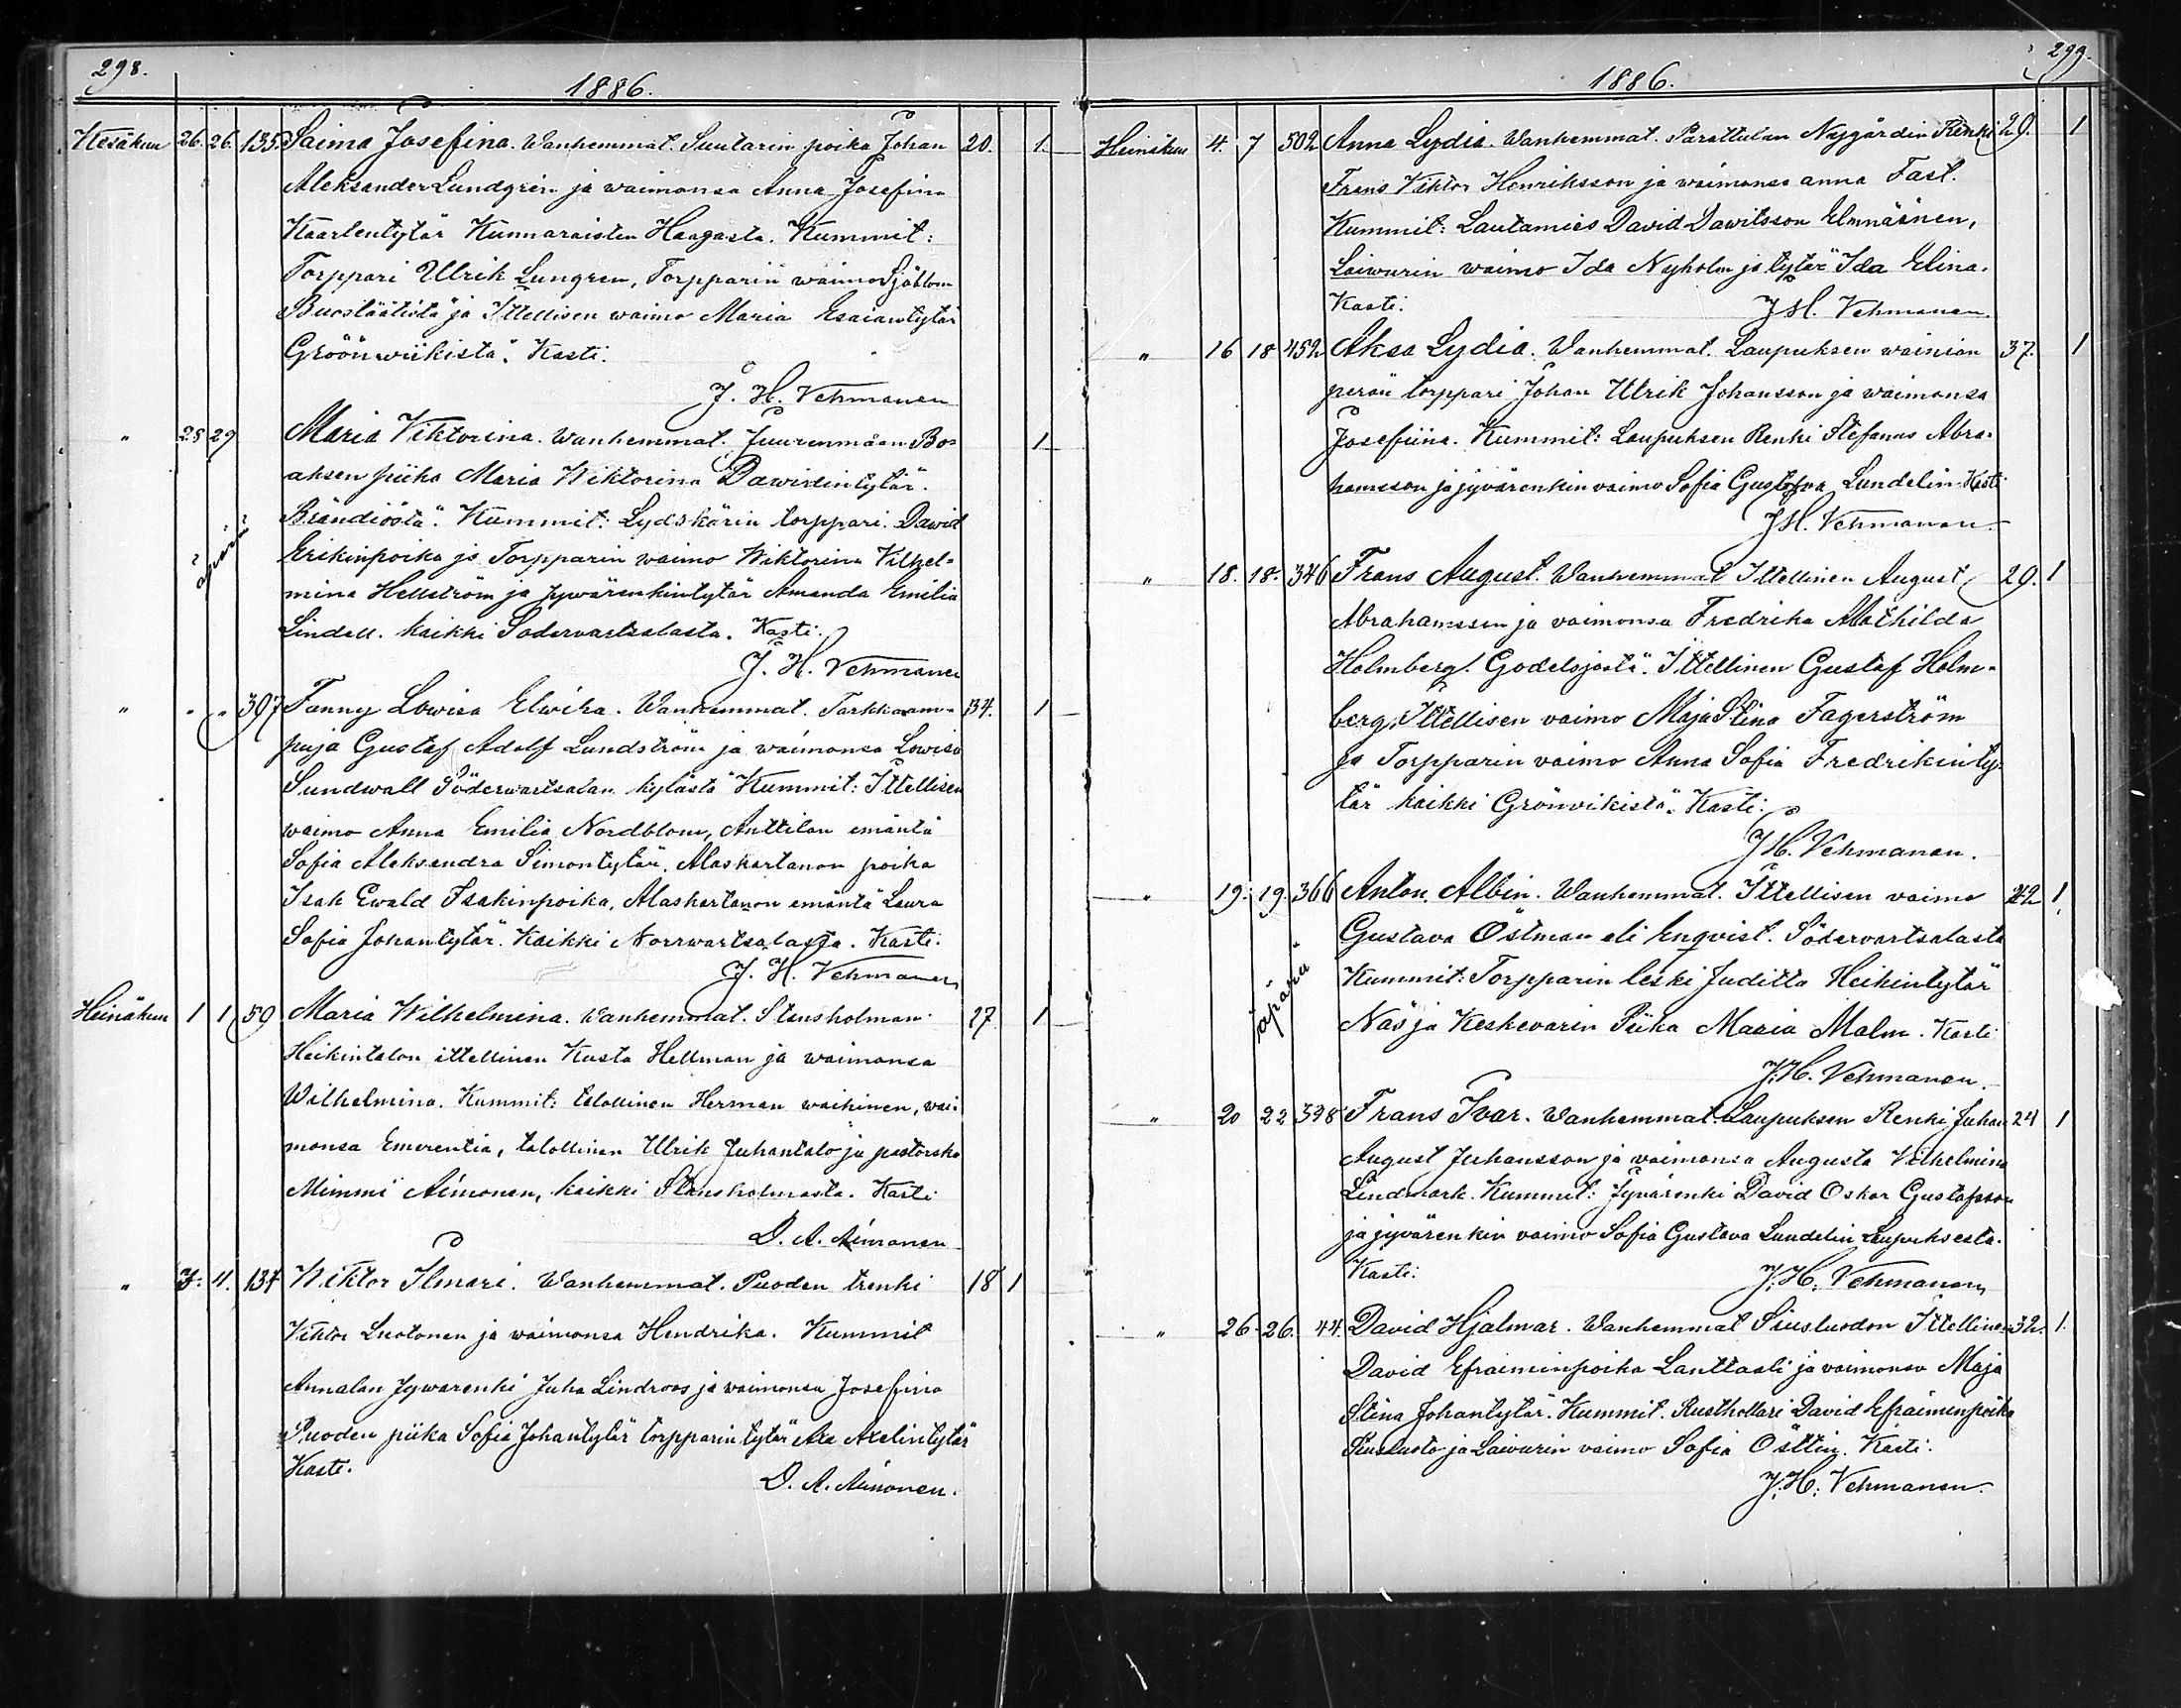 298.
1886.
Kesäkuu 26. 26. 135. Saima Josefina. Wanhemmat. Suutarin poika Johan 20. 1.
Aleksander Lundgren ja waimonsa Anna Josefina
Kaarlentytär Kunnaraisten Haagasta. Kummit:
Torppari Ulrik Lungren, Torpparin waimo Sjöblom
Buostäätistä ja Ittellisen waimo Maria Esaiantytär
Gröönwiikistä. Kasti.
J. H. Vehmanen
" 28 29 Maria Viktorina. Wanhemmat. Juurenmaan Bo= 1
aksen piika Maria Wiktorina Dawidintytär.
Brändiöstä. Kummit: Lydskärin torppari. Dawid
äpärä
Erikinpoika ja Torpparin waimo Wiktorina Vilhel=
mina Hellström ja Jywärenkintytär Amanda Emilia
Lindell. kaikki Södervartsalasta. Kasti.
J. H. Vehmanen
" " " 397 Fanny Lowisa Elwika. Wanhemmat. Tarkkaam= 34. 1
puja Gustaf Adolf Lundström ja waimonsa Lowisa
Sundwall Söderwartsalan kylästä Kummit: Ittellisen
waimo Anna Emilia Nordblom, Anttilan emäntä
Sofia Aleksandra Simontytär, Alaskartanon poika
Isak Ewald Isakinpoika, Alaskartanon emäntä Laura
Sofia Johantytär. Kaikki Norrwartsalasta. Kasti.
J. H. Vehmanen
Heinäkuu 1 1 59 Maria Wilhelmina. Wanhemmat. Stensholman 27. 1
Heikintalon ittellinen Kusta Hellman ja waimonsa
Wilhelmina. Kummit: talollinen Herman waihinen, wai=
monsa Emerentia, talollinen Ulrik Juhantalo ja pastorska
Mimmi Aimonen, kaikki Stensholmasta. Kasti
D. A. Aimonen
" 7. 11. 137 Wiktor Ilmari. Wanhemmat. Puoden trenki 18 1
Viktor Luotonen ja waimonsa Hendrika. Kummit
Annalan Jywarenki Juha Lindroos ja waimonsa Josefina
Puoden piika Sofia Johantytär torpparin tytär Axa Axelintytär
Kasti.
D. A. Aimonen.
299.
1886.
Heinäkuu 4. 7 502 Anna Lydia. Wanhemmat. Parattulan Nygårdin Renki 29. 1
Frans Viktor Henriksson ja waimonsa anna Fast.
Kummit: Lautamies David Dawitsson Elmnäinen,
Laiwurin waimo Ida Nyholm ja tytär Ida Elina.
Kasti: J.H. Vehmanen.
" 16 18 452 Aksa Lydia. Wanhemmat. Laupuksen wainion 37. 1
perän torppari Johan Ulrik Johansson ja waimonsa
Josefiina. Kummit: Laupuksen Renki Stefanus Abra=
hamsson ja jyvärenkin vaimo Sofia Gustafva Lundelin. Kasti
J.H. Vehmanen.
" 18. 18. 346 Frans August. Wanhemmat Ittellinen August 29. 1
Abrahamsson ja vaimonsa Fredrika Mathilda
Holmberg. Godelsjostä. Ittellinen Gustaf Holm=
berg, Ittellisen vaimo Maja Stina Fagerström
ja Torpparin vaimo Anna Sofia Fredrikinty=
tär kaikki Grönvikistä. Kasti:
J.H. Vehmanen.
" 19. 19. 366 Anton Albin. Wanhemmat. Ittellisen vaimo 42 1
Gustava Östman eli Enqvist. Södervartsalasta
äpärä
Kummit: Torpparin leski Juditta Heikintytär
Näs ja Keskevarin Piika Maria Malm. Kasti
J.H. Vehmanen.
" 20 22 338 Frans Ivar. Wanhemmat. Laupuksen Renki Juhan 24 1
August Juhansson ja waimonsa Augusta Vilhelmina
Lindmark. Kummit: Jyvärenki David Oskar Gustafsson
ja jyvärenkin vaimo Sofia Gustava Lundelin Laupuksesta.
Kasti: J. H. Vehmanen
" 26. 26. 44. David Hjalmar. Wanhemmat Siusluodon Ittellinen 32. 1.
David Efraiminpoika Lanttaali ja vaimonsa Maja
Stina Johantytär. Kummit. Rusthollari David Efraiminpoika
Siusluoto ja Laivurin vaimo Sofia Östtin. Kasti.
J. H. Vehmanen.